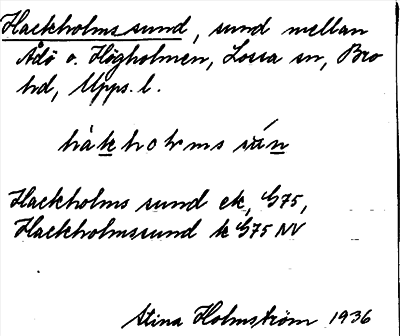 Hackholms sund, sund mellan
Ådö o. Högholmen, Lossa sn, Bro
hd, Upps. l.
håkholms sún
Hackholms sund ek, G75,
Hackholmssund k G75 NV
Stina Holmström 1936